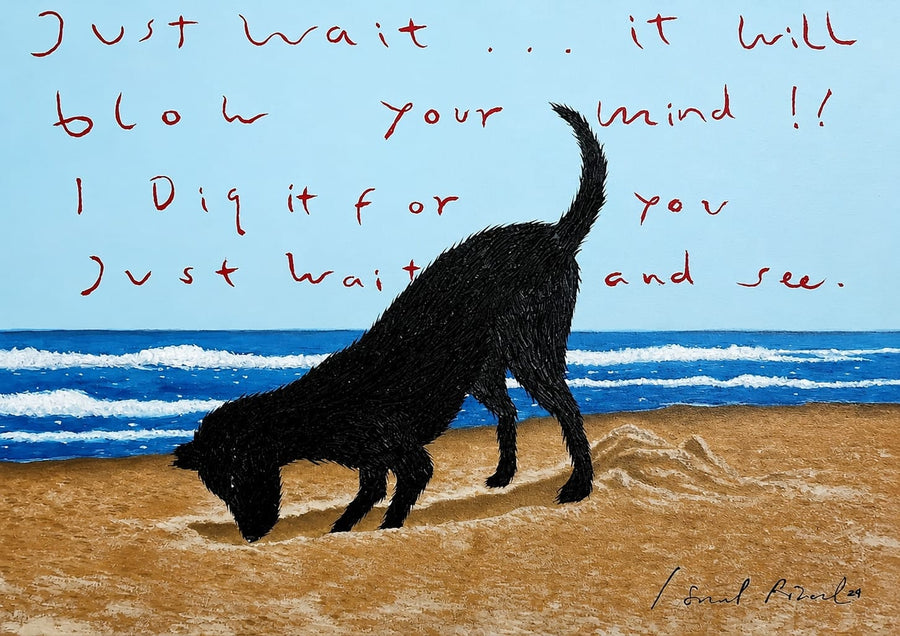 Just wait ... it will
blow your mind !!
I Dig it for you
Just wait and see.